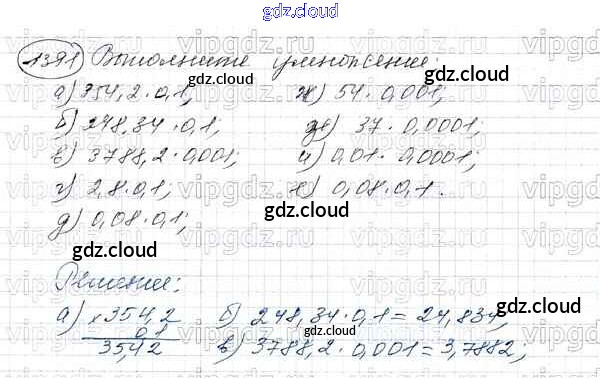 gdz.cloud
1391 Выполните умножение:
а) 354,2 · 0,1; ж) 54 · 0,001;
б) 248,34 · 0,1; з) 37 · 0,0001;
в) 3788,2 · 0,001; и) 0,01 · 0,0001;
г) 2,8 · 0,1; к) 0,08 · 0,1.
д) 0,08 · 0,1;
gdz.cloud
gdz.cloud
gdz.cloud
gdz.cloud
gdz.cloud
gdz.cloud
Решение:
а) × 354,2 б) 248,34 · 0,1 = 24,834;
0,1
35,42 в) 3788,2 · 0,001 = 3,7882;
gdz.cloud
gdz.cloud